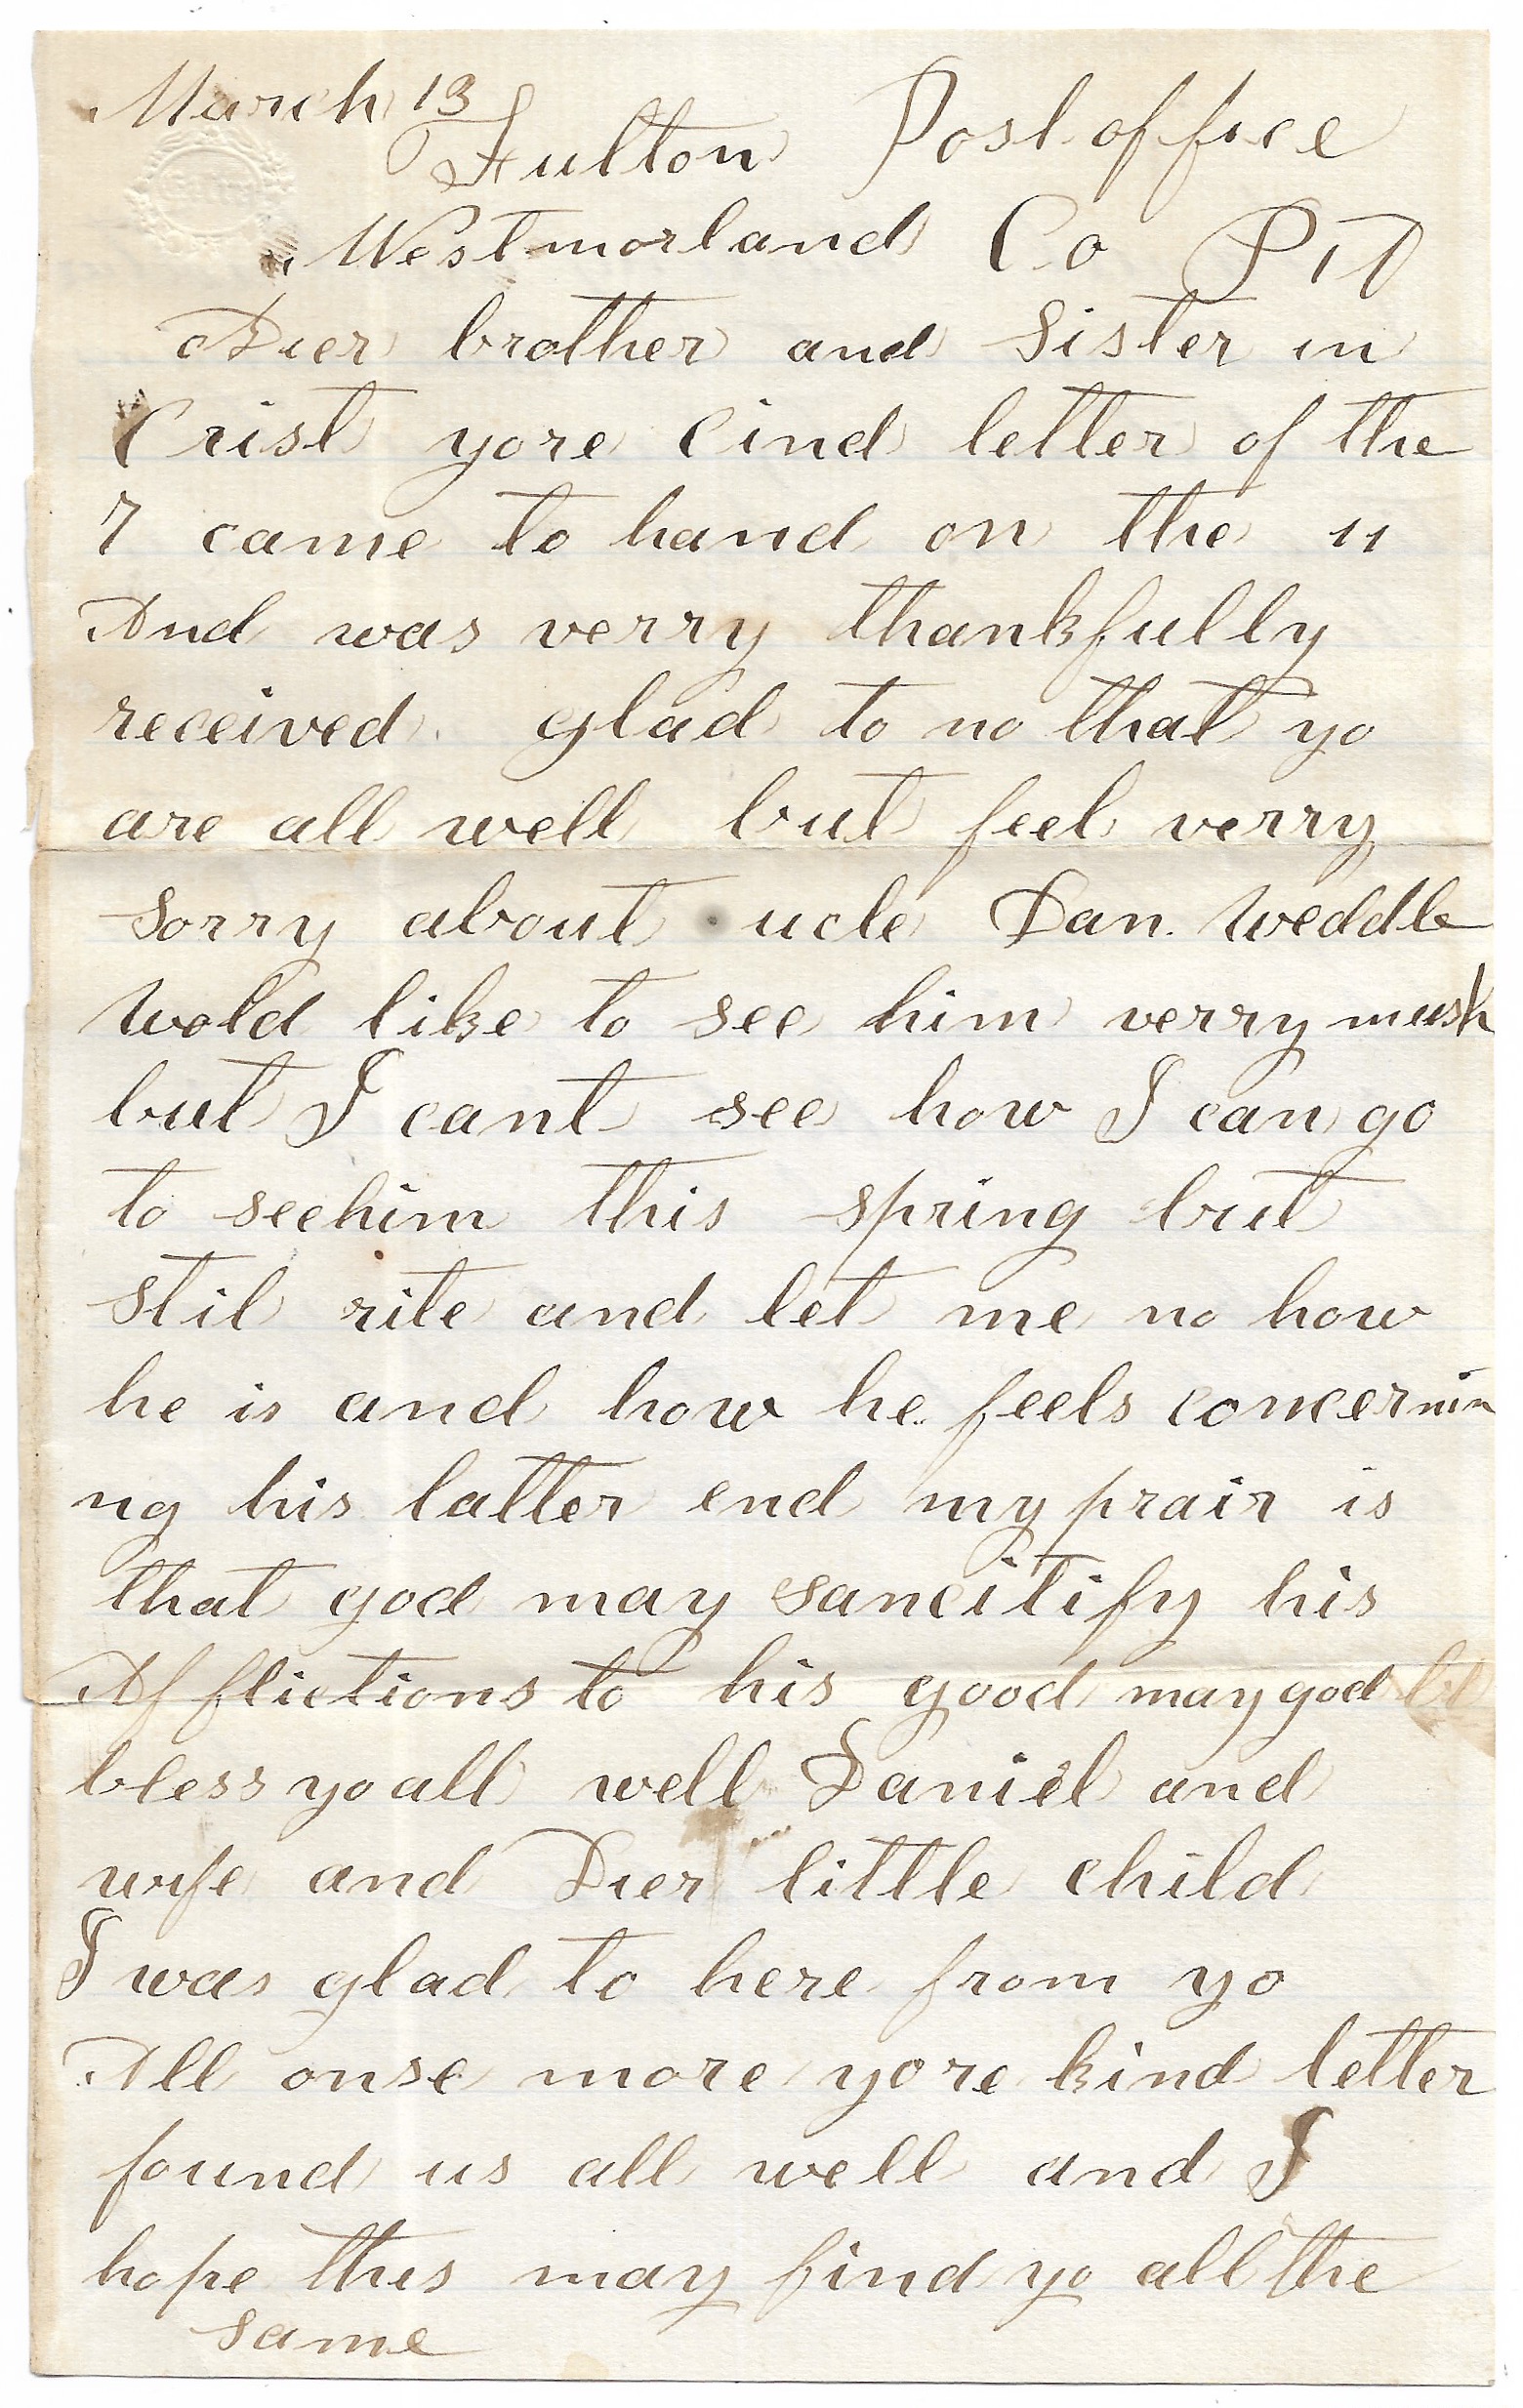 March 13
Fulton Post office
Westmorland Co PA
Dier brother and Sister in
Crist yore cind letter of the
7 came to hand on the 11
And was verry thankfully
received. glad to no that yo
are all well but feel verry
sorry about ucle Dan. Weddle
Wold like to see him verry mush
but I cant see how I can go
to seehim this spring but
stil rite and let me no how
he is and how he feels concernin
ng his latter end my prair is
that god may sancitify his
Afflictions to his good may god bl
bless yo all well Daniel and
wife and Dier little child
I was glad to here from yo
All onse more yore kind letter
found us all well and I
hope this may find yo all the
same